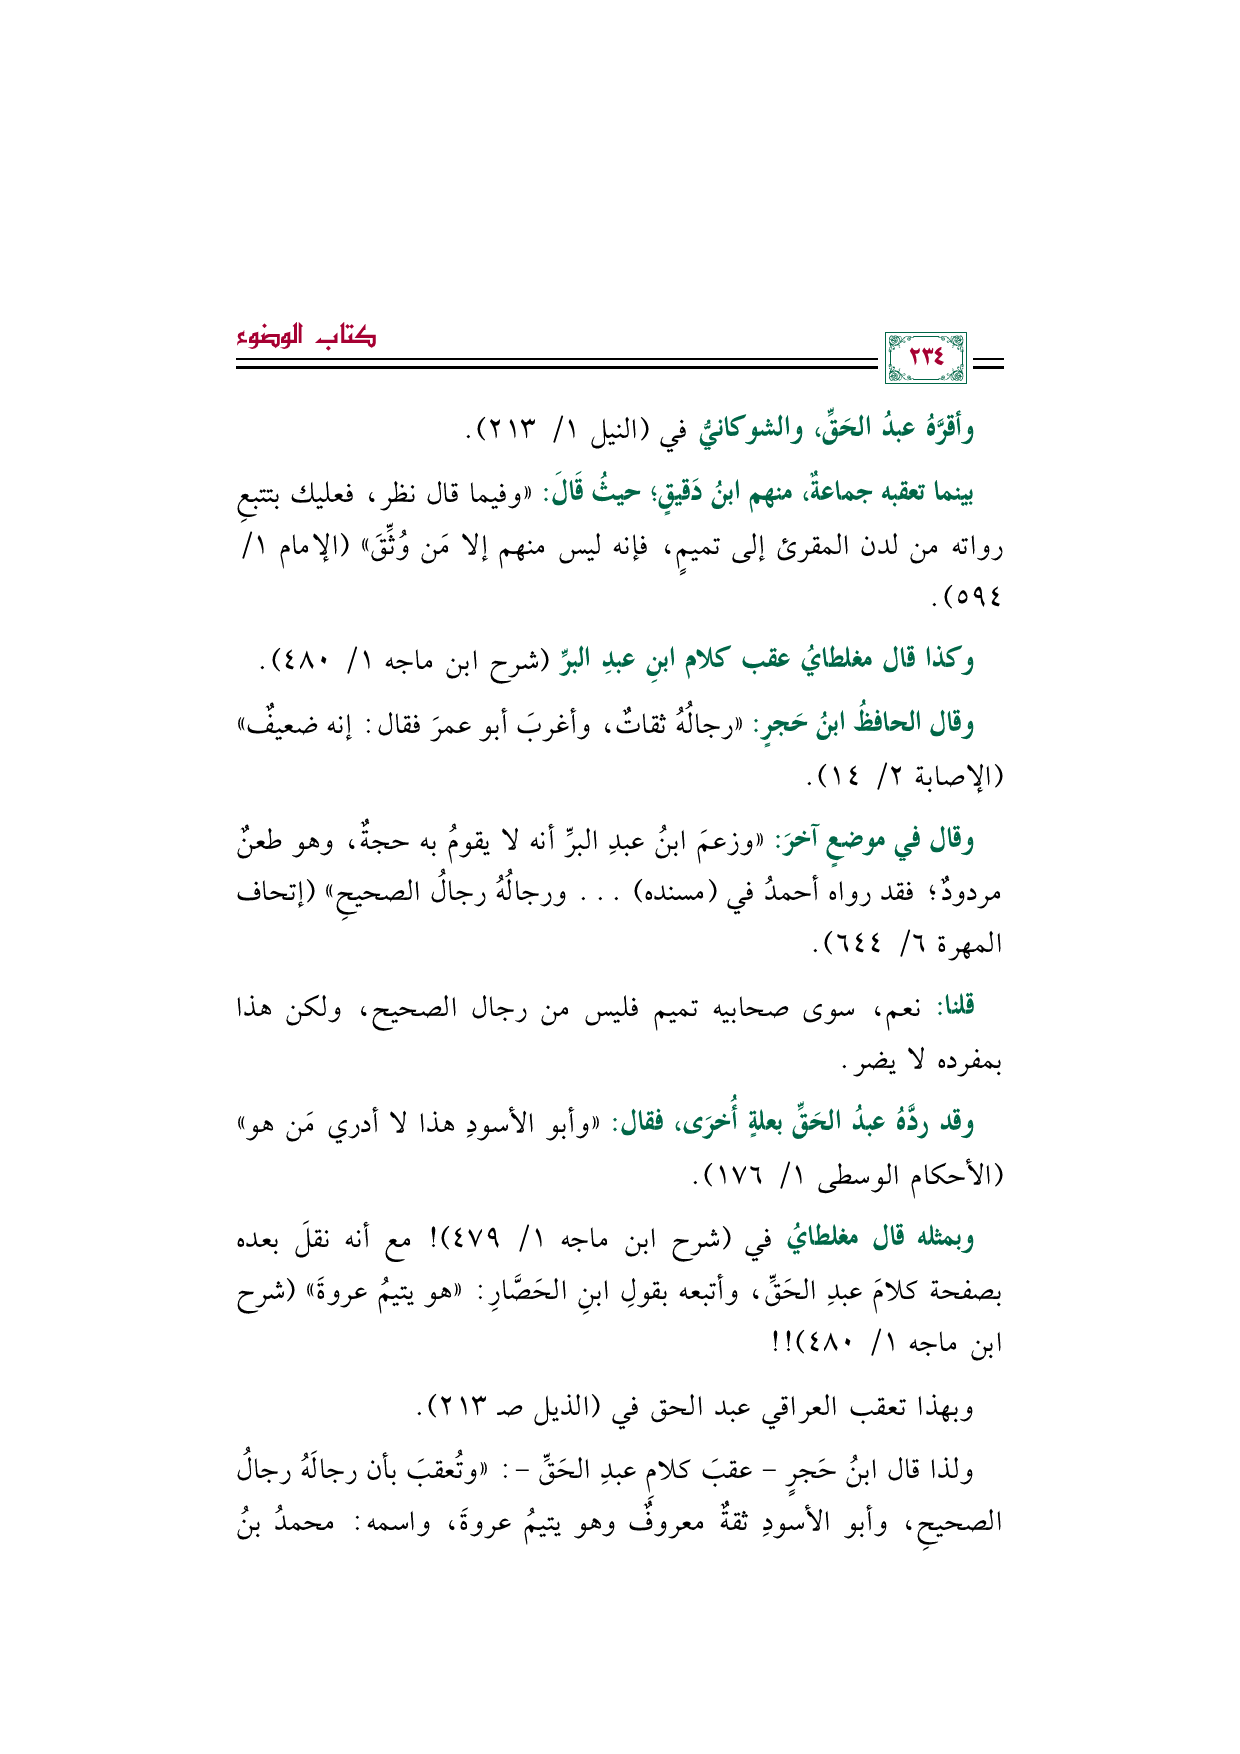 كتاب الوضوء
٢٣٤
وأقرَّهُ عبدُ الحَقِّ، والشوكانيُّ في (النيل ١/ ٢١٣).
بينما تعقبه جماعةٌ، منهم ابنُ دَقيقٍ؛ حيثُ قَالَ: «وفيما قال نظر، فعليك بتتبعِ
رواته من لدن المقرئ إلى تميمٍ، فإنه ليس منهم إلا مَن وُثِّقَ» (الإمام ١/
٥٩٤).
وكذا قال مغلطايُ عقب كلام ابنِ عبدِ البرِّ (شرح ابن ماجه ١/ ٤٨٠).
وقال الحافظُ ابنُ حَجرٍ: «رجالُهُ ثقاتٌ، وأغربَ أبو عمرَ فقال: إنه ضعيفٌ»
(الإصابة ٢/ ١٤).
وقال في موضعٍ آخرَ: «وزعمَ ابنُ عبدِ البرِّ أنه لا يقومُ به حجةٌ، وهو طعنٌ
مردودٌ؛ فقد رواه أحمدُ في (مسنده) . . . ورجالُهُ رجالُ الصحيحِ» (إتحاف
المهرة ٦/ ٦٤٤).
قلنا: نعم، سوى صحابيه تميم فليس من رجال الصحيح، ولكن هذا
بمفرده لا يضر.
وقد ردَّهُ عبدُ الحَقِّ بعلةٍ أُخرَى، فقال: «وأبو الأسودِ هذا لا أدري مَن هو»
(الأحكام الوسطى ١/ ١٧٦).
وبمثله قال مغلطايُ في (شرح ابن ماجه ١/ ٤٧٩)! مع أنه نقلَ بعده
بصفحة كلامَ عبدِ الحَقِّ، وأتبعه بقولِ ابنِ الحَصَّارِ: «هو يتيمُ عروةَ» (شرح
ابن ماجه ١/ ٤٨٠)!!
وبهذا تعقب العراقي عبد الحق في (الذيل صـ ٢١٣).
ولذا قال ابنُ حَجرٍ - عقبَ كلامِ عبدِ الحَقِّ -: «وتُعقبَ بأن رجالَهُ رجالُ
الصحيحِ، وأبو الأسودِ ثقةٌ معروفٌ وهو يتيمُ عروةَ، واسمه: محمدُ بنُ